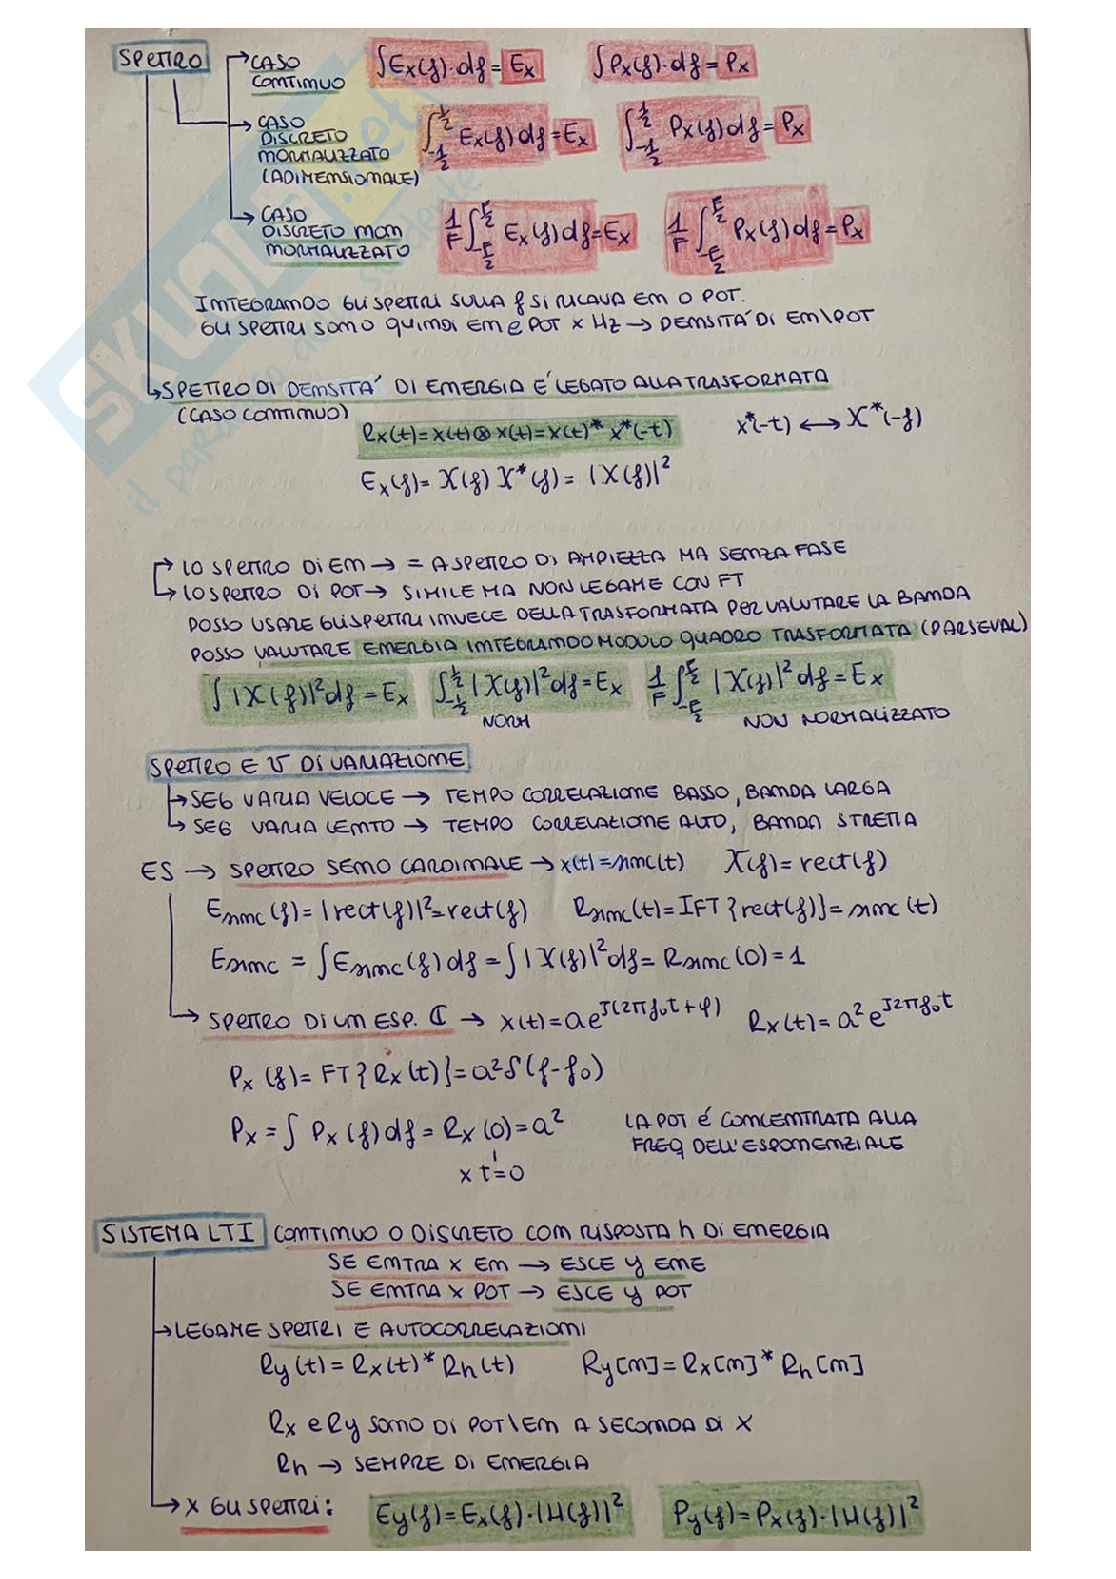 SPETTRO
CASO CONTINUO ∫Ex(f)·df = Ex ∫Px(f)·df = Px
CASO DISCRETO NORMALIZZATO (ADIMENSIONALE) ∫_{-1/2}^{1/2} Ex(f)df = Ex ∫_{-1/2}^{1/2} Px(f)df = Px
CASO DISCRETO NON NORMALIZZATO 1/F ∫_{-F/2}^{F/2} Ex(f)df = Ex 1/F ∫_{-F/2}^{F/2} Px(f)df = Px
INTEGRANDO GLI SPETTRI SULLA f SI RICAVA EN O POT.
GLI SPETTRI SONO QUINDI EN e POT x Hz → DENSITA' DI EN\POT
SPETTRO DI DENSITA' DI ENERGIA E' LEGATO ALLA TRASFORMATA
(CASO CONTINUO)
Rx(t) = x(t) ⊗ x(t) = x(t) * x*(-t) x*(-t) ↔ X*(-f)
Ex(f) = X(f) X*(f) = |X(f)|²
LO SPETTRO DI EN → = A SPETTRO DI AMPIEZZA MA SENZA FASE
LO SPETTRO DI POT → SIMILE MA NON LEGAME CON FT
POSSO USARE GLI SPETTRI INVECE DELLA TRASFORMATA PER VALUTARE LA BANDA
POSSO VALUTARE ENERGIA INTEGRANDO MODULO QUADRO TRASFORMATA (PARSEVAL)
∫|X(f)|²df = Ex ∫_{-1/2}^{1/2} |X(f)|²df = Ex 1/F ∫_{-F/2}^{F/2} |X(f)|²df = Ex
NORM NON NORMALIZZATO
SPETTRO E V DI VARIAZIONE
SEG VARIA VELOCE → TEMPO CORRELAZIONE BASSO, BANDA LARGA
SEG VARIA LENTO → TEMPO CORRELAZIONE ALTO, BANDA STRETTA
ES → SPETTRO SENO CARDINALE → x(t) = sinc(t) X(f) = rect(f)
Esinc(f) = |rect(f)|² = rect(f) Rsinc(t) = IFT{rect(f)} = sinc(t)
Esinc = ∫Esinc(f)df = ∫|X(f)|²df = Rsinc(0) = 1
SPETTRO DI UN ESP. ℂ → x(t) = ae^{J(2πf₀t+φ)} Rx(t) = a²e^{J2πf₀t}
Px(f) = FT{Rx(t)} = a²δ(f-f₀)
Px = ∫Px(f)df = Rx(0) = a² LA POT é CONCENTRATA ALLA
FREQ DELL'ESPONENZIALE
x t=0
SISTEMA LTI CONTINUO O DISCRETO CON RISPOSTA h DI ENERGIA
SE ENTRA x EN → ESCE y ENE
SE ENTRA x POT → ESCE y POT
LEGAME SPETTRI E AUTOCORRELAZIONI
Ry(t) = Rx(t) * Rh(t) Ry[n] = Rx[n] * Rh[n]
Rx e Ry SONO DI POT\EN A SECONDA DI X
Rh → SEMPRE DI ENERGIA
X GLI SPETTRI: Ey(f) = Ex(f)·|H(f)|² Py(f) = Px(f)·|H(f)|²